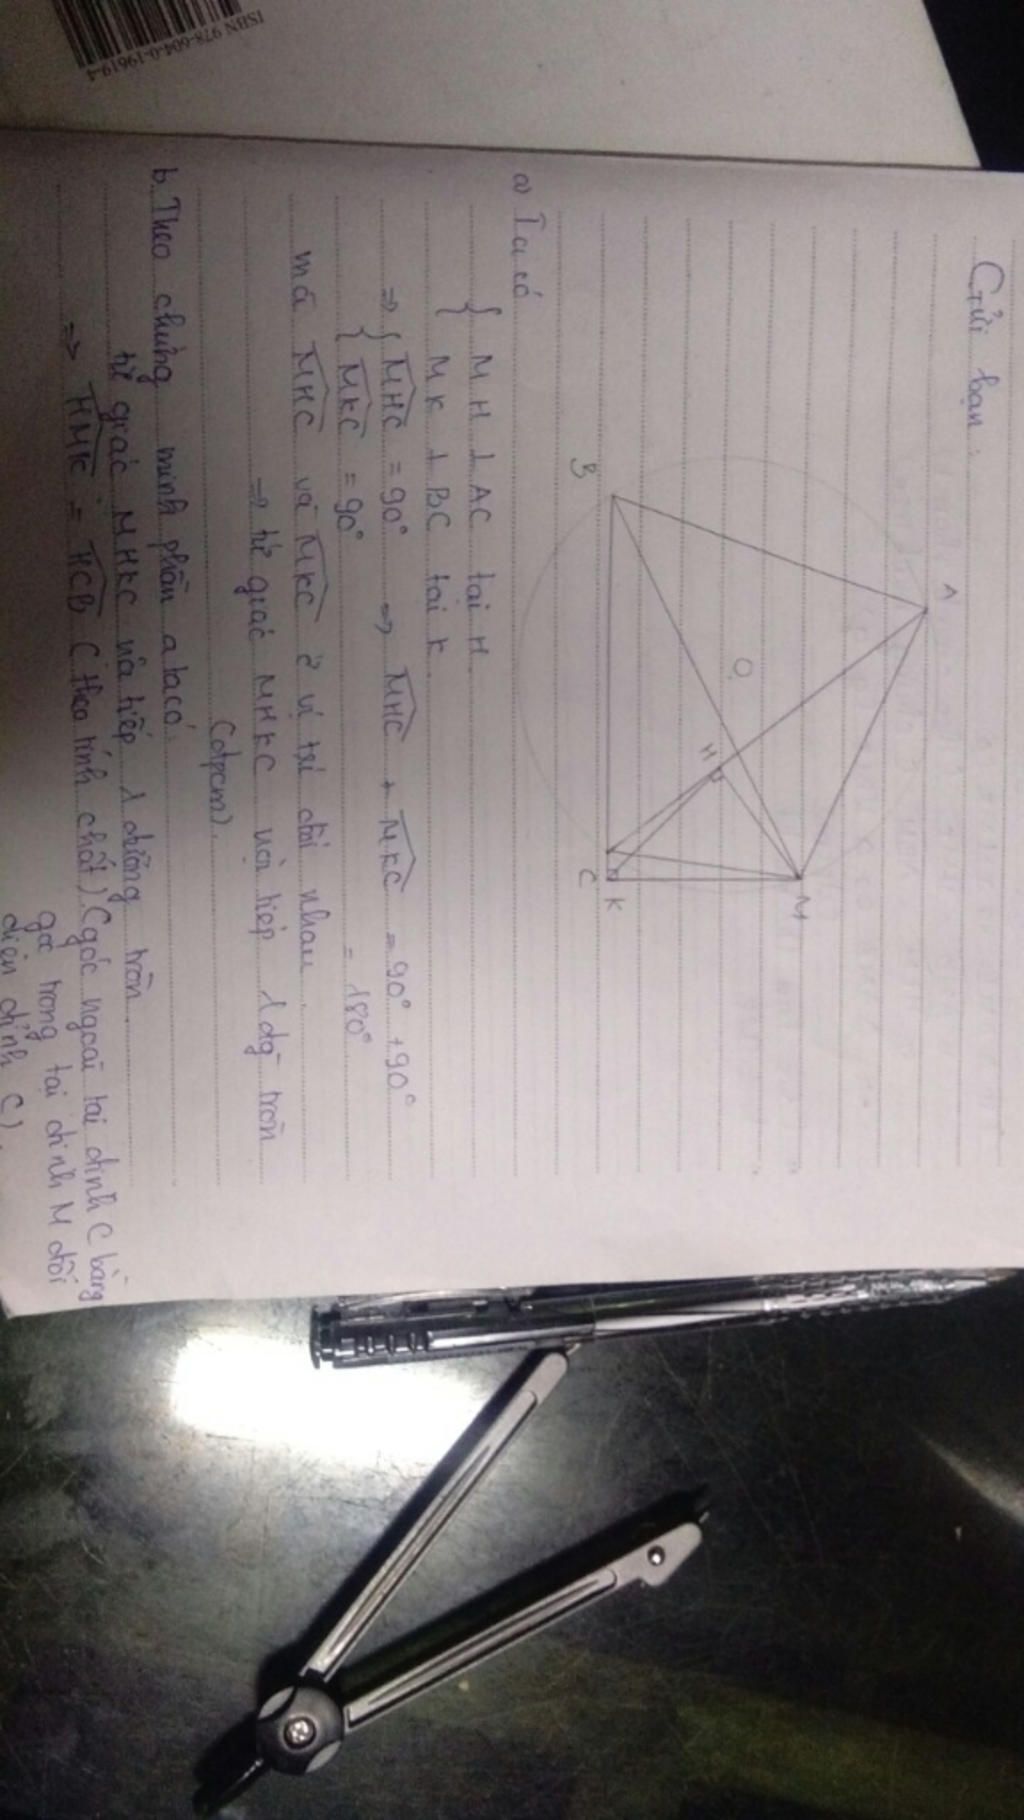 ISBN 978-604-0-19619-4
Gửi bạn.
A
M
O
H
B
C
K
a) Ta có
{ MH ⊥ AC tại H.
{ MK ⊥ BC tại K.
⇒ { MHC = 90° ⇒ MHC + MKC = 90° + 90°
{ MKC = 90° = 180°
mà MHC và MKC ở vị trí đối nhau.
⇒ tứ giác MHKC nội tiếp 1 đg tròn
(đpcm).
b. Theo chứng minh phần a ta có.
tứ giác MHKC nội tiếp 1 đường tròn.
⇒ HMK = HCB (theo tính chất) (góc ngoài tại đỉnh C bằng
góc trong tại đỉnh M đối
diện đỉnh C).